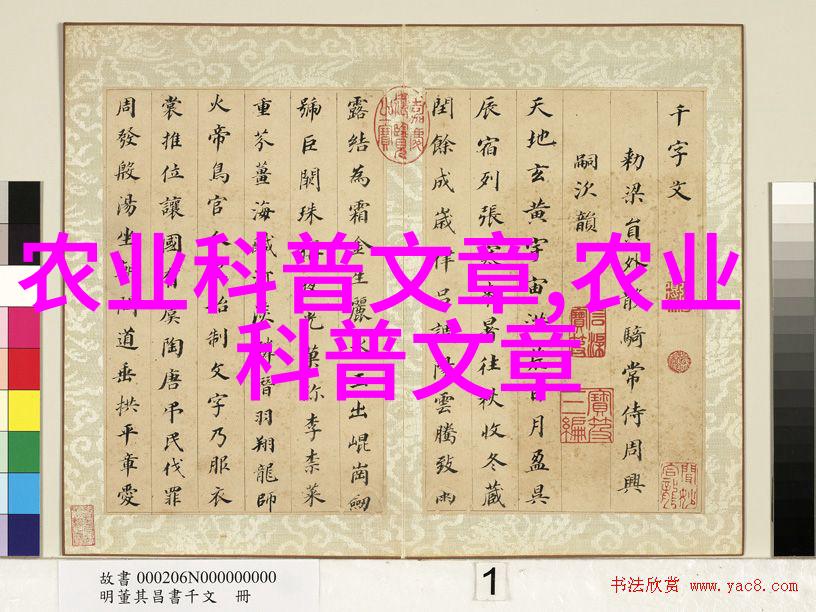 千字文
勅梁員外散騎常侍周興
嗣次韻
天地玄黃宇宙洪荒日月盈昃
辰宿列張寒來暑往秋收冬藏
閏餘成歲律呂調陽雲騰致雨
露結為霜金生麗水玉出崐崗劍
號巨闕珠稱夜光菓珍李柰菜
重芥薑海鹹河淡鱗潛羽翔龍師
火帝鳥官人始制文字乃服衣
裳推位讓國有虞陶唐弔民伐罪
周發殷湯坐朝問道垂拱平章愛
农业科普文章,农业
科普文章
故書 000206N000000000
明董其昌書千文 冊
1
书法欣赏 www.yac8.com